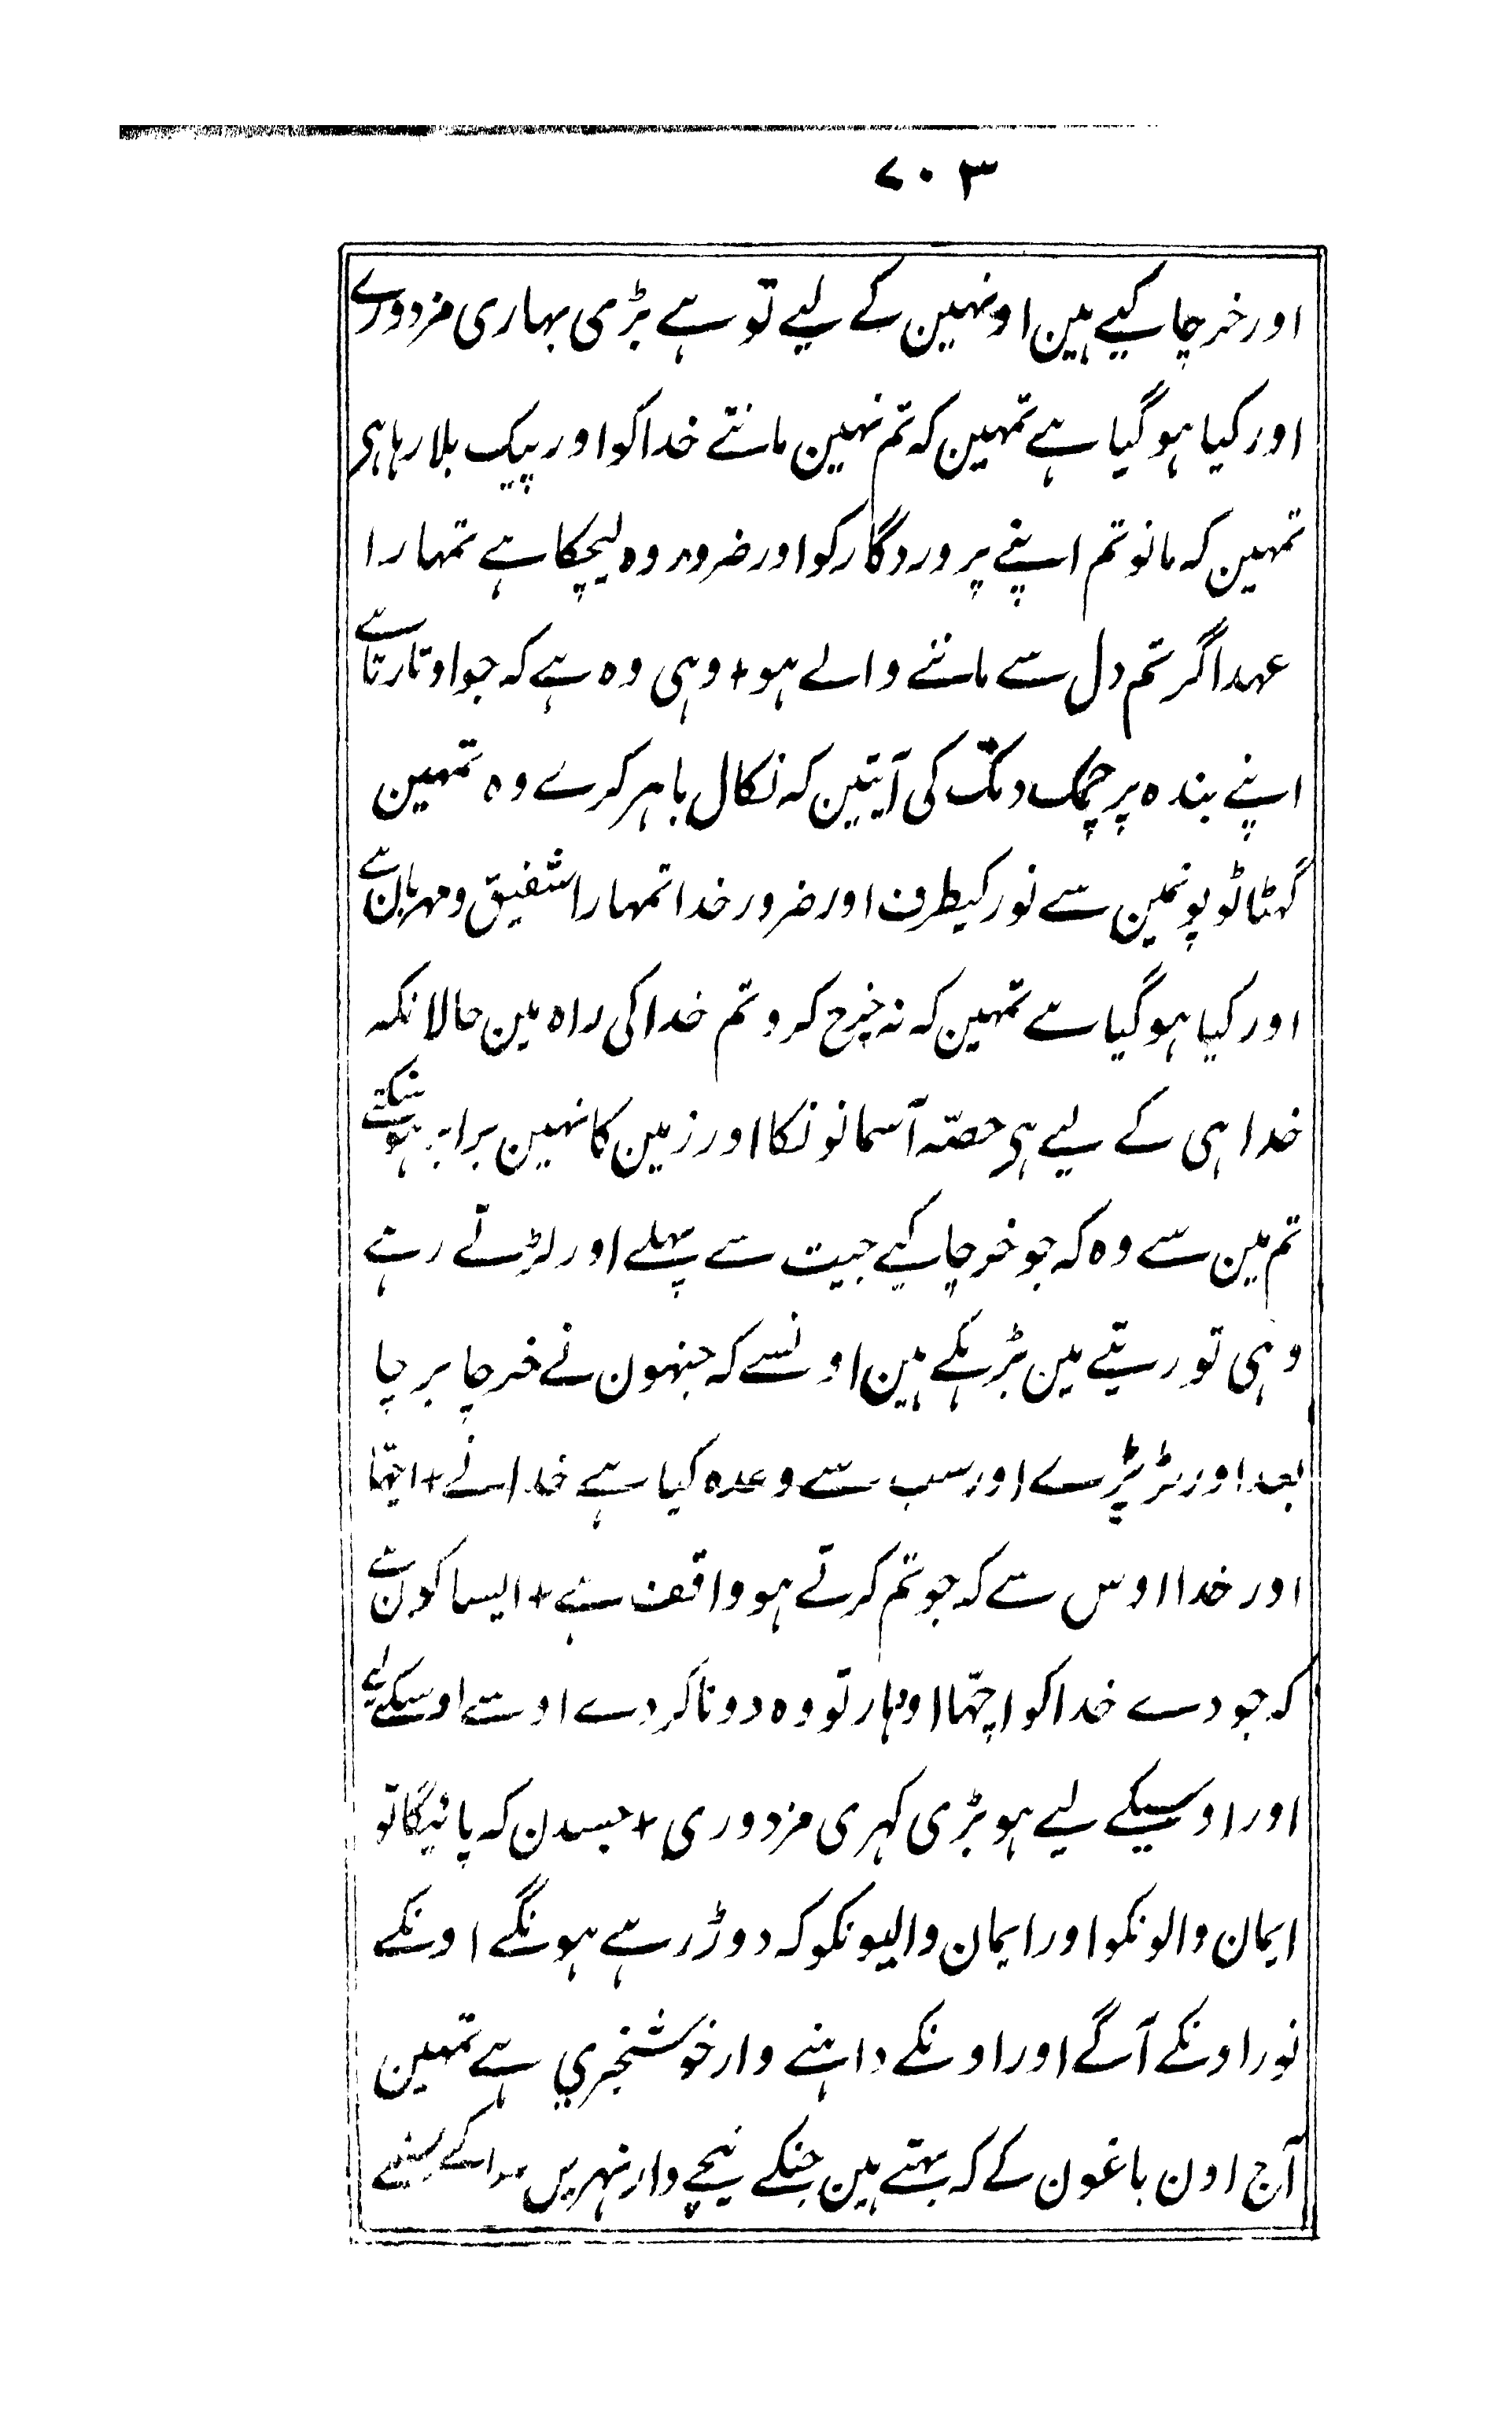 ۷۰۳
اور خرچا کیے ہین اونہین کے لیے تو ہے بڑی بہاری مزدورے
اور کیا ہو گیا ہے تمہین کہ تم نہین مانتے خدا کو اور پیک بلا رہا ہی
تمہین کہ مانو تم اپنے پروردگار کو اور ضرور وہ لیچکا ہے تمہارا
عہد اگر تم دل سے ماننے والے ہو + وہی وہ ہے کہ جو اوتارتا ہے
اپنے بندہ پر چمک دمک کی آیتین کہ نکال باہر کرے وہ تمہین
گہٹا ٹوپونمین سے نور کیطرف اور ضرور خدا تمہارا شفیق و مہربان ہے
اور کیا ہو گیا ہے تمہین کہ نہ خرچ کرو تم خدا کی راہ مین حالانکہ
خدا ہی کے لیے ہی حصّہ آسمانونکا اور زمین کا نہین برابر ہو سکتے
تم مین سے وہ کہ جو خرچا کیے جیت سے پہلے اور لڑتے رہے
وہی تو رتبے مین بڑہکے ہین اونسے کہ جنہون نے خرچا برچا
بعد اور لڑ پڑے اور سب سے وعدہ کیا ہے خدا نے + اچّہا
اور خدا اوس سے کہ جو تم کرتے ہو واقف ہے + ایسا کون ہے
کہ جو دے خدا کو اچّہا اودہار تو وہ دونا کر دے اوسے اوسکے لیے
اور اوسیکے لیے ہو بڑی کہری مزدوری + جسدن کہ پائیگا تو
ایمان والونکو اور ایمان والیونکو کہ دوڑ رہے ہونگے اونکے
نور اونکے آگے اور اونکے داہنے وار خوشخبری ہے تمہین
آج اون باغون کے کہ بہتے ہین جنکے نیچے وار نہرین سدا کے بسنے